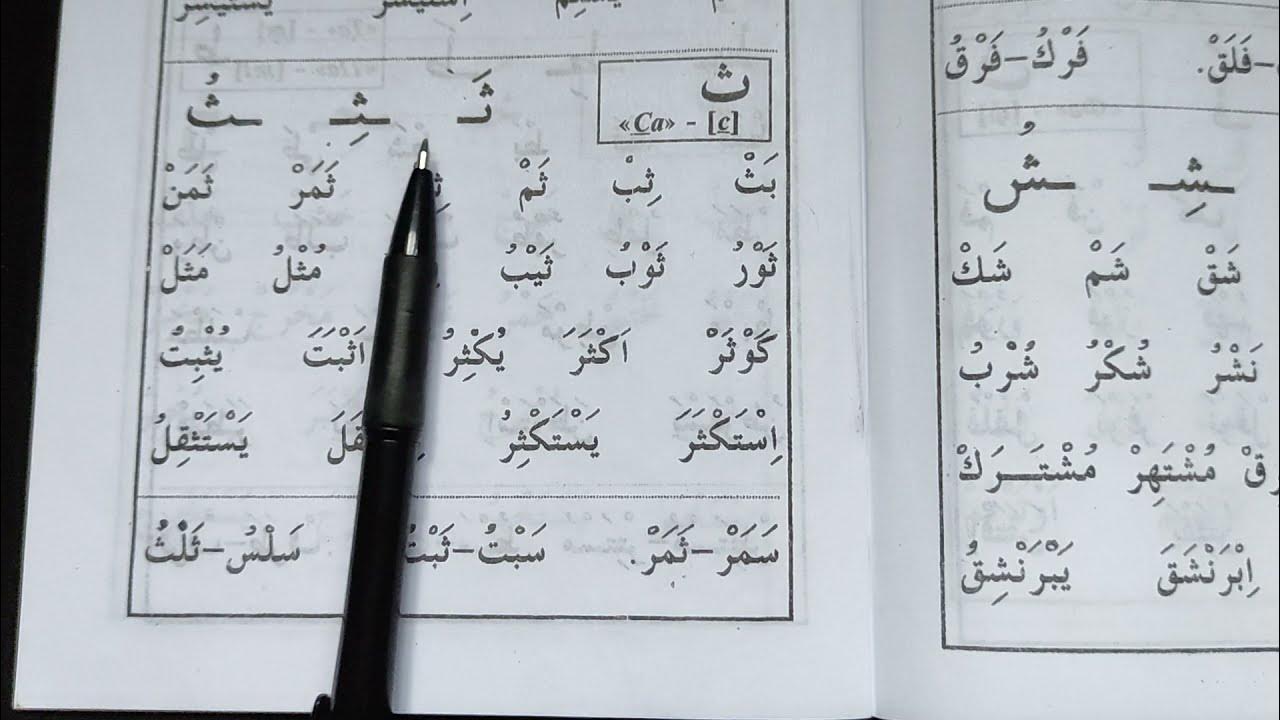 ث
«Ca» - [c]
ثَـ ـثِـ ـثُ
بَثْ ثِبْ ثَمْ ثَمَرْ ثَمَنْ
ثَوْرُ ثَوْبُ ثَيْبُ مُثْلُ مَثَلْ
كَوْثَرْ اَكْثَرَ يُكْثِرُ اَثْبَتَ يُثْبِتُ
اِسْتَكْثَرَ يَسْتَكْثِرُ يَسْتَثْقِلُ
سَمَرْ–ثَمَرْ. سَبْتُ–ثَبْتُ سَلْسُ–ثَلْثُ
فَلَقْ. فَرْكُ–فَرْقُ
ـشِـ ـشُ
شَقْ شَمْ شَكْ
نَشْرُ شُكْرُ شُرْبُ
مُشْتَهِرْ مُشْتَـرَكْ
اِبْرَنْشَقَ يَبْرَنْشِقُ